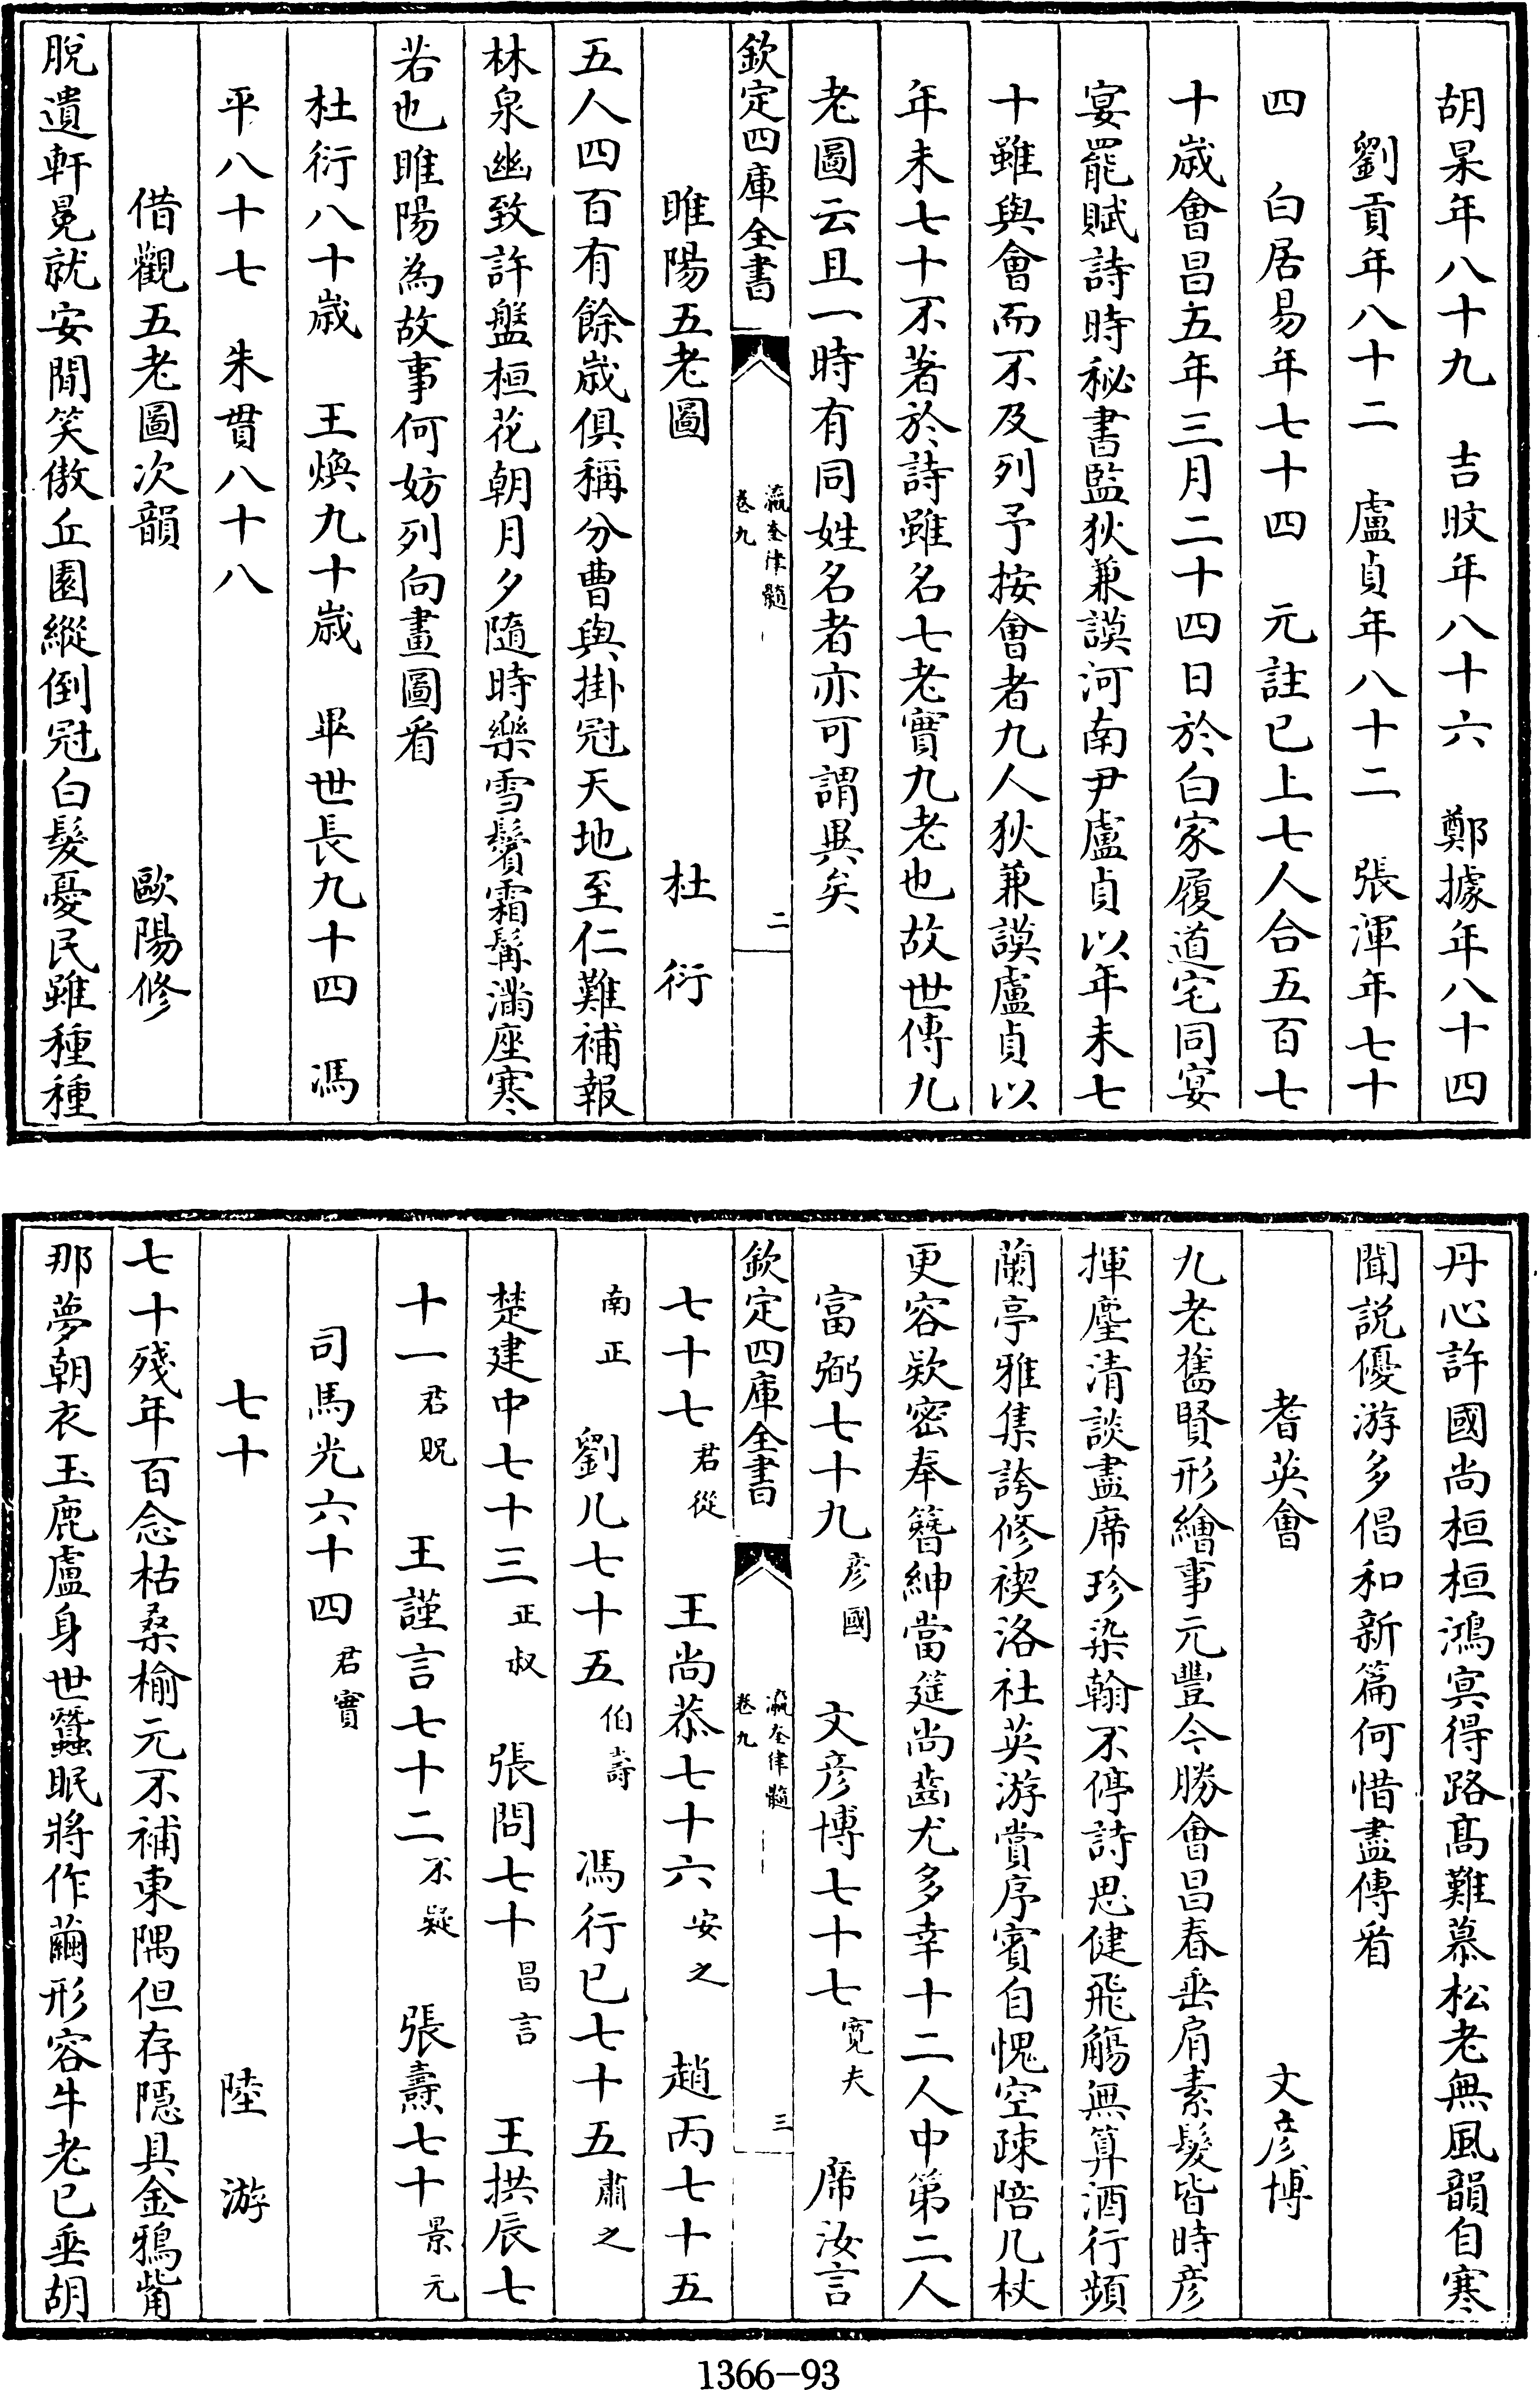 胡杲年八十九　吉旼年八十六　鄭據年八十四
劉貢年八十二　盧貞年八十二　張渾年七十
四　白居易年七十四　元註已上七人合五百七
十歲會昌五年三月二十四日於白家履道宅同宴
宴罷賦詩時秘書監狄兼謨河南尹盧貞以年未七
十雖與會而不及列予按會者九人狄兼謨盧貞以
年未七十不著於詩雖名七老實九老也故世傳九
老圖云且一時有同姓名者亦可謂異矣
欽定四庫全書　瀛奎律髓　卷九　二
睢陽五老圖　杜衍
五人四百有餘歲俱稱分曹與掛冠天地至仁難補報
林泉幽致許盤桓花朝月夕隨時樂雪鬢霜髯滿座寒
若也睢陽為故事何妨列向畫圖看
杜衍八十歲　王煥九十歲　畢世長九十四　馮
平八十七　朱貫八十八
借觀五老圖次韻　歐陽修
脫遺軒冕就安閒笑傲丘園縱倒冠白髮憂民雖種種
丹心許國尚桓桓鴻冥得路髙難慕松老無風韻自寒
聞説優游多倡和新篇何惜盡傳看
耆英會　文彥博
九老舊賢形繪事元豐今勝會昌春垂肩素髮皆時彥
揮麈清談盡席珍染翰不停詩思健飛觴無算酒行頻
蘭亭雅集誇修禊洛社英游賞序賓自愧空疎陪几杖
更容欵密奉簪紳當筵尚齒尤多幸十二人中第二人
富弼七十九彥國　文彥博七十七寛夫　席汝言
欽定四庫全書　瀛奎律髓　卷九　三
七十七君從　王尚恭七十六安之　趙丙七十五
南正　劉几七十五伯壽　馮行已七十五肅之
楚建中七十三正叔　張問七十昌言　王拱辰七
十一君貺　王謹言七十二不疑　張燾七十景元
司馬光六十四君實
七十　陸游
七十殘年百念枯桑榆元不補東隅但存隱具金鴉觜
那夢朝衣玉鹿盧身世蠶眠將作繭形容牛老已垂胡
1366-93